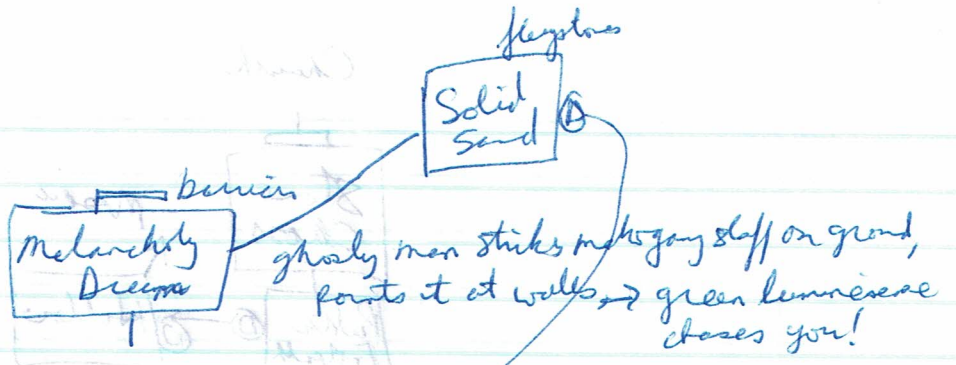 flagstones
Solid
Sand
D
barrier
Melancholy
Dream
ghostly man strikes mahogany staff on ground,
points it at walls → green luminescence
chases you!